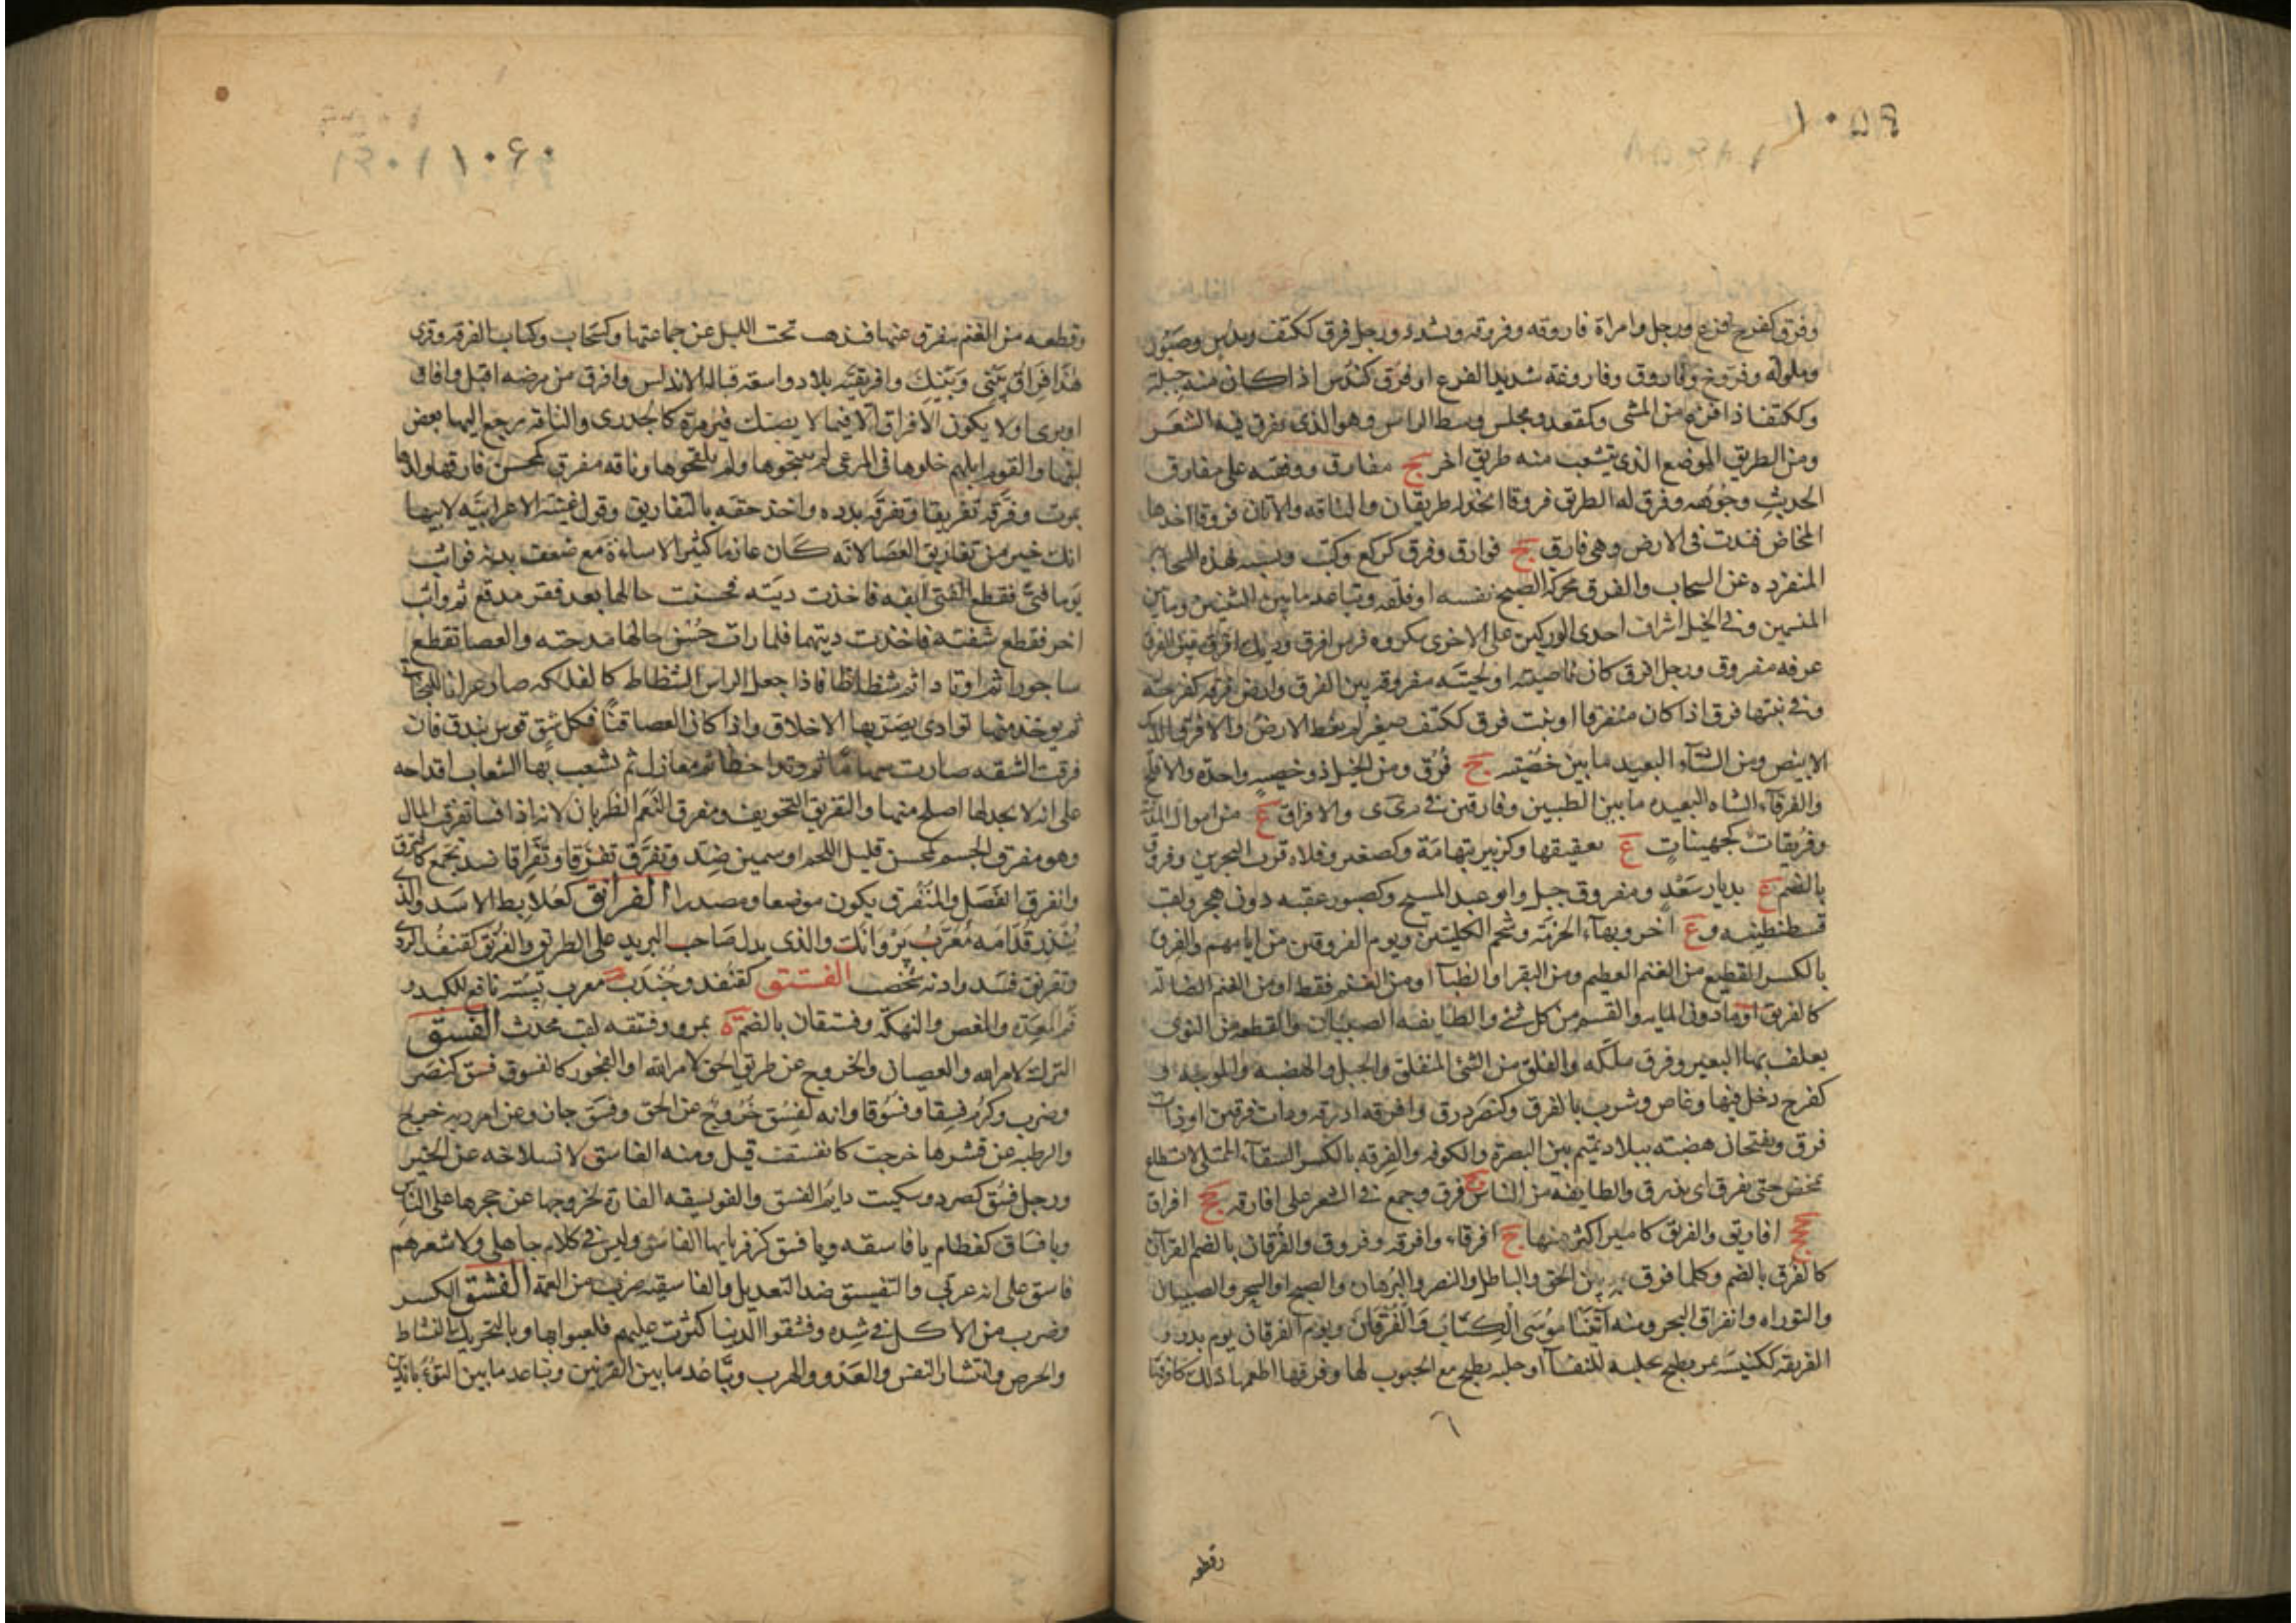 ١٠٥٩
وفرق كفرح فزع ورجل وامراة فاروقه وفروقه وشدد ورجل فرق ككتف وندس وصبور
وملوله وفروخ وفاروق وفاروقة شديد الفزع او فرق كندس اذا كان منه جبلة
وككتف اذا فزع من الشى وكمقعد ومجلس وسط الراس وهو الذى يفرق فيه الشعر
ومن الطريق الموضع الذى يتشعب منه طريق اخر ج مفارق ووقفته على مفارق
الحديث وجوهه وفرق له الطريق فروقا اتجه له طريقان والناقه والاتان فروقا اخذها
المخاض فندت فى الارض وهى فارق ج فوارق وفرق كركع وكتب وتشبه بهذه السحابة
المنفرده عن السحاب والفرق محركة الصبح نفسه او فلقه وتباعد ما بين الثنيتين وما بين
المنسمين وفى الخيل اشراف احدى الوركين على الاخرى يكره فرس افرق وديك افرق بين الفرق
عرفه مفروق ورجل افرق كان ناصيته او لحيته مفروقه بين الفرق وارض فرقه كفرحه
وفى نبتها فرق اذا كان متفرقا او نبت فرق ككتف صغير لم يغط الارض والافرق الديك
الابيض ومن الشاء البعيد ما بين خصيتيه ج فرق ومن الخيل ذو خصيه واحدة والافلج
والفرقاء الشاه البعيده ما بين الطبيين وفارقين فى م ى ى والافراق ع من اموال المدينة
وفريقات كجهينات ع بعقيقها وكزبير بتهامة وكصغير وفلاه قرب البحرين وفروق
بالضم ع بديار سعد ومفروق جبل وابو عبد المسيح وكصبور عقبه دون هجر ولقب
قسطنطينيه وع اخر وبهاء الحرمة وشحم الكليتين ويوم الفروقين من ايامهم والفرق
بالكسر القطيع من الغنم العظيم ومن البقر او الظباء او من الغنم فقط او من الغنم الضالة
كالفريق او ما دون المايه والقسم من كل شئ والطايفه الصبيان والقطعه من النوى
يعلف بها البعير وفرق ملكه والفلق من الشئ المنفلق والجبل والهضبه والموجه و
كفرح دخل فيها وغاص وشرب بالفرق وكنصر ذرق وافرقه اذرقه وذات فرقين او ذات
فرق ويفتحان هضبته ببلاد تميم بين البصرة والكوفه والفرقه بالكسر السقاء الممتلى لا يستطاع
يمخض حتى يفرق اى يذرق والطايفة من الناس ج فرق وجمع فى الشعر على افارقه جج افراق
ججج افاريق والفريق كامير اكثر منها ج افرقاء وافرقه وفروق والفرقان بالضم القرآن
كالفرق بالضم وكلما فرق به بين الحق والباطل والنصر والبرهان والصبح او السحر والصبيان
والتوراه وانفراق البحر ومنه آتَيْنَا مُوسَى الْكِتَابَ وَالْفُرْقَانَ ويوم الفرقان يوم بدر و
الفريقه ككنيسة تمر يطبخ بحلبه للنفساء او حلبه تطبخ مع الحبوب لها وفرقها اطعمها ذلك كافرقها
٦
وقطعه
١٠٦٠
وقطعه من الغنم تتفرق عنها فتذهب تحت الليل عن جماعتها وكسحاب وكتاب الفرقه وقرى
هٰذَا فِرَاقُ بَيْنِى وَبَيْنِكَ وافريقيه بلاد واسعة قبالة الاندلس وافرق من مرضه اقبل وافاق
او برى او لا يكون الافراق الا فيما لا يصيبك غير مرة كالجدرى والناقه رجع اليها بعض
لبنها والقوم ابلهم خلوها فى المرعى لم ينتجوها ولم يلقحوها وناقه مفرق كمحسن فارقها ولدها
بموت وفرقه تفريقا وتفرقه بدده واخذ حقه بالتفاريق وقول غنية الاعرابيه لابنها
انك خير من تفاريق العصا لانه كان عارما كثير الاساءة مع ضعف بدنه فواثب
يوما فتى فقطع الفتى انفه فاخذت ديته فحسنت حالها بعد فقر مدقع ثم واثب
اخر فقطع شفته فاخذت ديتهما فلما رات حسن حالها مدحته والعصا تقطع
ساجورا ثم اوتادا ثم شظاظا فاذا جعل الراس الشظاظ كالفلكه صار عرانا للبخاتى
ثم يوخذ منها توادى يصر بها الاخلاف واذا كان العصا قنا فكل شق قوس بندق فان
فرقت الشقه صارت سهاما ثم وتدا خطاء ثم مغازل ثم تشعب بها الشعاب اقداحه
على انه لا يجد لها اصلح منها والتفريق التخويف ومفرق النعم الظربان لانه اذا فسا تفرق المال
وهو مفرق الجسم كمحسن قليل اللحم او سمين ضد وتفرق تفرقا وتفراقا ضد تجمع كافترق
وانفرق انفصل والمنفرق يكون موضعا ومصدرا الفرانق كعلابط الاسد والذى
ينذر قدامه معرب بروانك والذى يدل صاحب البريد على الطريق والفرنق كقنفذ الردى
وتفرنق فسد واذنه شخصت الفستق كقنفد وجندب معرب بسته نافع للكبد و
فم المعده والمغص والنهكه وفستقان بالضم ة بمرو وفستقه لقب محدث الفسق
الترك لامر الله والعصيان والخروج عن طريق الحق لامر الله او الفجور كالفسوق فسق كنصر
وضرب وكرم فسقا وفسوقا وانه لفسق خروج عن الحق وفسق جان وعن امر ربه خرج
والرطبه عن قشرها خرجت كانفسقت قيل ومنه الفاسق لانسلاخه عن الخير
ورجل فسق كصرد وسكيت دايم الفسق والفويسقه الفارة لخروجها عن حجرها على الناس
ويا فساق كقطام يا فاسقه ويا فسق كزفر يا ايها الفاسق وليس فى كلام جاهلى ولا شعرهم
فاسق على انه عربى والتفسيق ضد التعديل والفاسقيه ضرب من العمة الفشق الكسر
وضرب من الاكل فى شده وفشقوا الدنيا كثرت عليهم فلعبوا بها وبالتحريك النشاط
والحرص وانتشار النفس والعدو والهرب وتباعد ما بين القرنين وتباعد ما بين التوابانيين